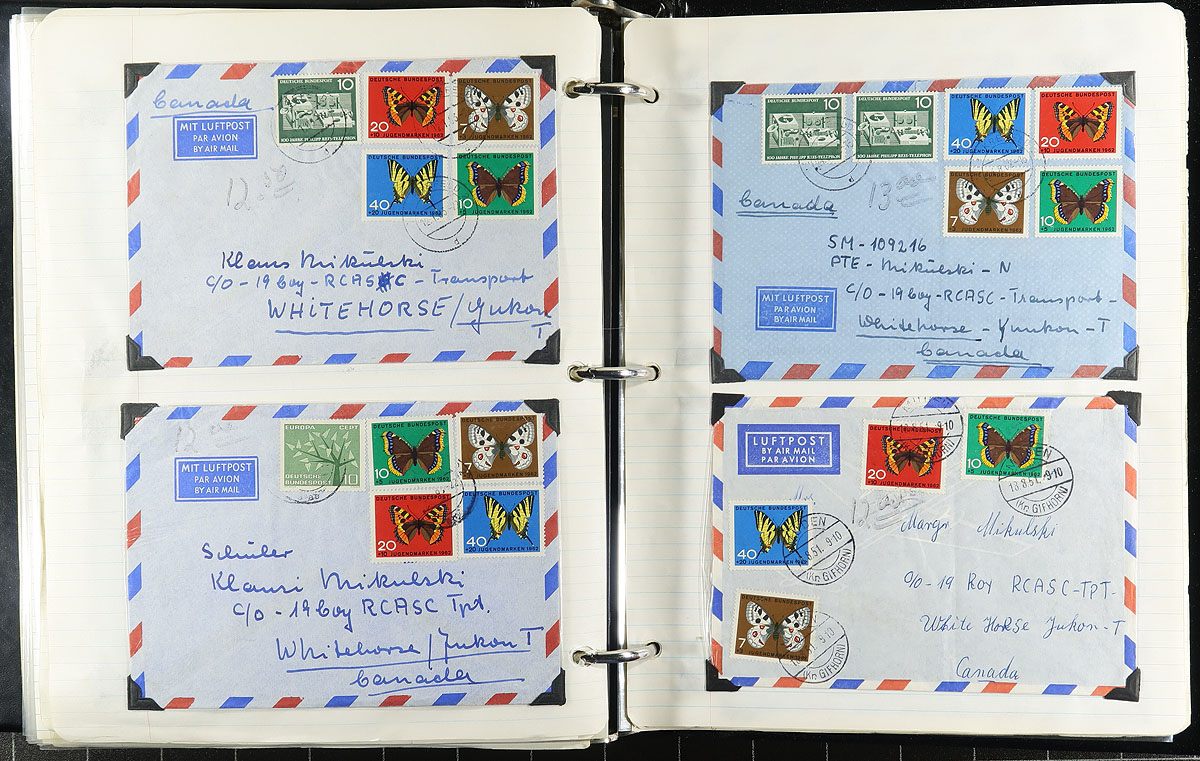 Canada
MIT LUFTPOST
PAR AVION
BY AIR MAIL
DEUTSCHE BUNDESPOST
10
100 JAHRE PHILIPP REIS-TELEPHON
DEUTSCHE BUNDESPOST
20
+10 JUGENDMARKEN 1962
DEUTSCHE BUNDESPOST
7
JUGENDMARKEN 1962
DEUTSCHE BUNDESPOST
40
+20 JUGENDMARKEN 1962
DEUTSCHE BUNDESPOST
10
+5 JUGENDMARKEN 1962
Klaus Mikulski
C/O - 19 Coy - RCASC - Transport
WHITEHORSE / Yukon
T
MIT LUFTPOST
PAR AVION
BY AIR MAIL
EUROPA CEPT
DEUTSCHE
BUNDESPOST 10
DEUTSCHE BUNDESPOST
10
+5 JUGENDMARKEN 1962
DEUTSCHE BUNDESPOST
7
JUGENDMARKEN 1962
DEUTSCHE BUNDESPOST
20
+10 JUGENDMARKEN 1962
DEUTSCHE BUNDESPOST
40
+20 JUGENDMARKEN 1962
Schüler
Klausi Mikulski
C/O - 19 Coy RCASC Tpt.
Whitehorse / Yukon T
Canada
DEUTSCHE BUNDESPOST
10
100 JAHRE PHILIPP REIS-TELEPHON
DEUTSCHE BUNDESPOST
10
100 JAHRE PHILIPP REIS-TELEPHON
DEUTSCHE BUNDESPOST
40
+20 JUGENDMARKEN 1962
DEUTSCHE BUNDESPOST
20
+10 JUGENDMARKEN 1962
DEUTSCHE BUNDESPOST
7
JUGENDMARKEN 1962
DEUTSCHE BUNDESPOST
10
+5 JUGENDMARKEN 1962
Canada
SM - 109216
PTE - Mikulski - N
C/O - 19 Coy - RCASC - Transport -
Whitehorse - Yunkon - T
Canada
MIT LUFTPOST
PAR AVION
BY AIR MAIL
LUFTPOST
BY AIR MAIL
PAR AVION
DEUTSCHE BUNDESPOST
20
+10 JUGENDMARKEN 1962
DEUTSCHE BUNDESPOST
10
+5 JUGENDMARKEN 1962
9-10
(Kr. GIFHORN)
DEUTSCHE BUNDESPOST
40
+20 JUGENDMARKEN 1962
9-10
(Kr. GIFHORN)
DEUTSCHE BUNDESPOST
7
JUGENDMARKEN 1962
9-10
(Kr. GIFHORN)
Margi Mikulski
C/O - 19 Roy RCASC-TPT-
White Horse Yukon - T
Canada